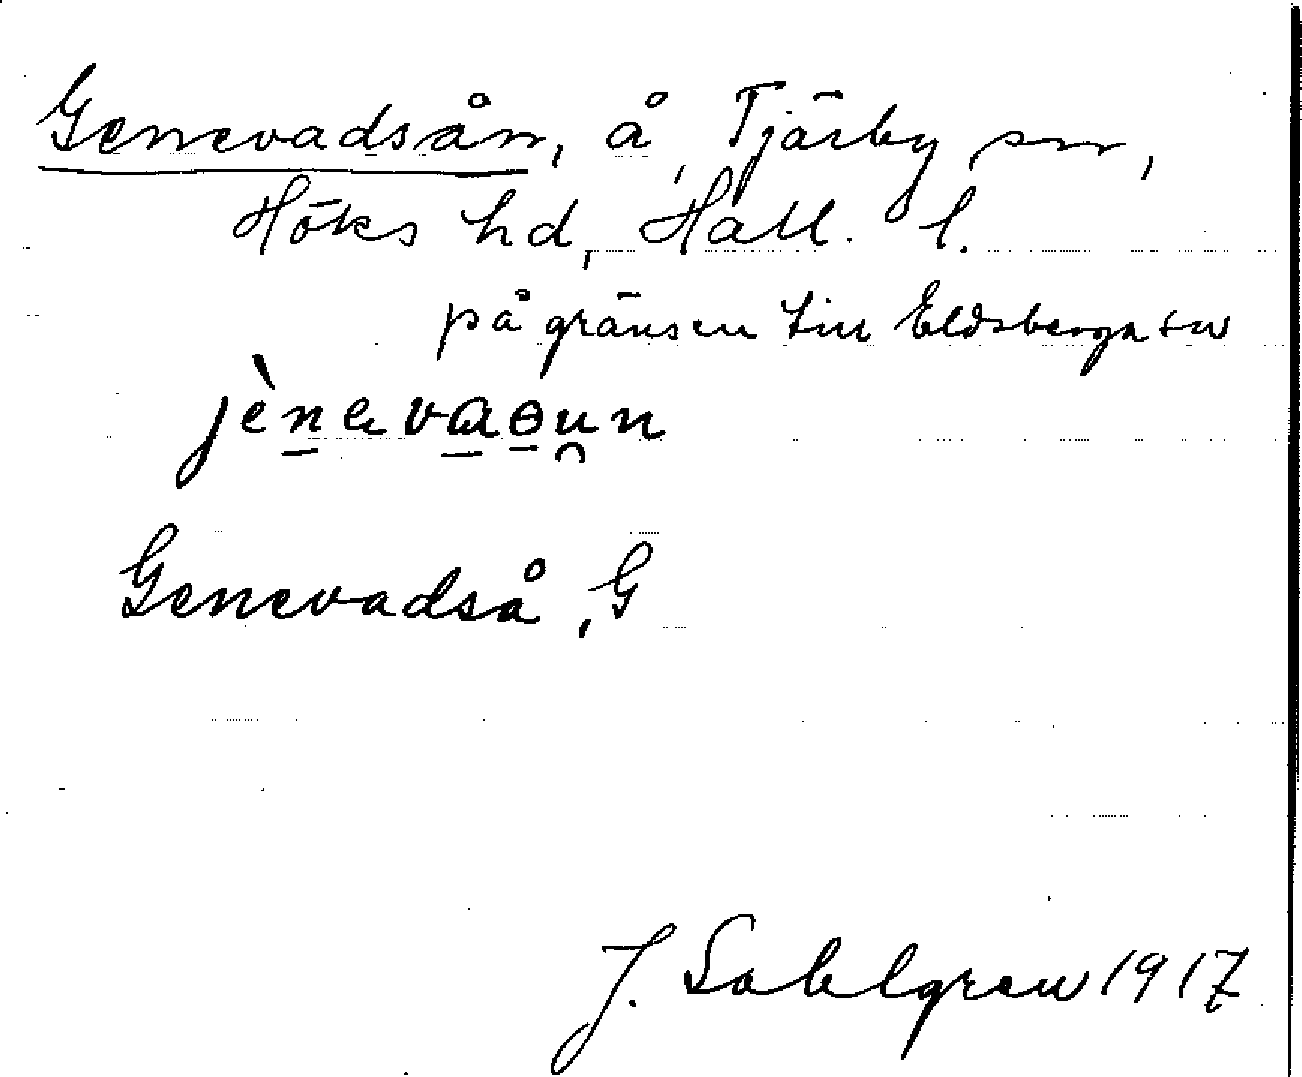 Genevadsån, å, Tjärby sn,
Höks hd, Hall. l.
på gränsen till Eldsberga sn
jènevaɵun
Genevadså, G
J. Sahlgren 1917